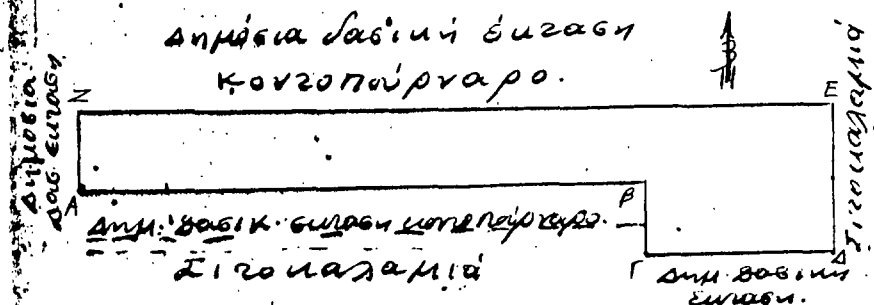 Δημόσια δασική έκταση
Κοντοπούρναρο.
Δημόσια
δασ έκταση
Ζ
Ε
Σιτοκαλαμιά
Α
Β
Δημ. δασικ. έκταση κοντοπούρναρο.
Σιτοκαλαμιά
Γ
Δ
Δημ δασική
έκταση.